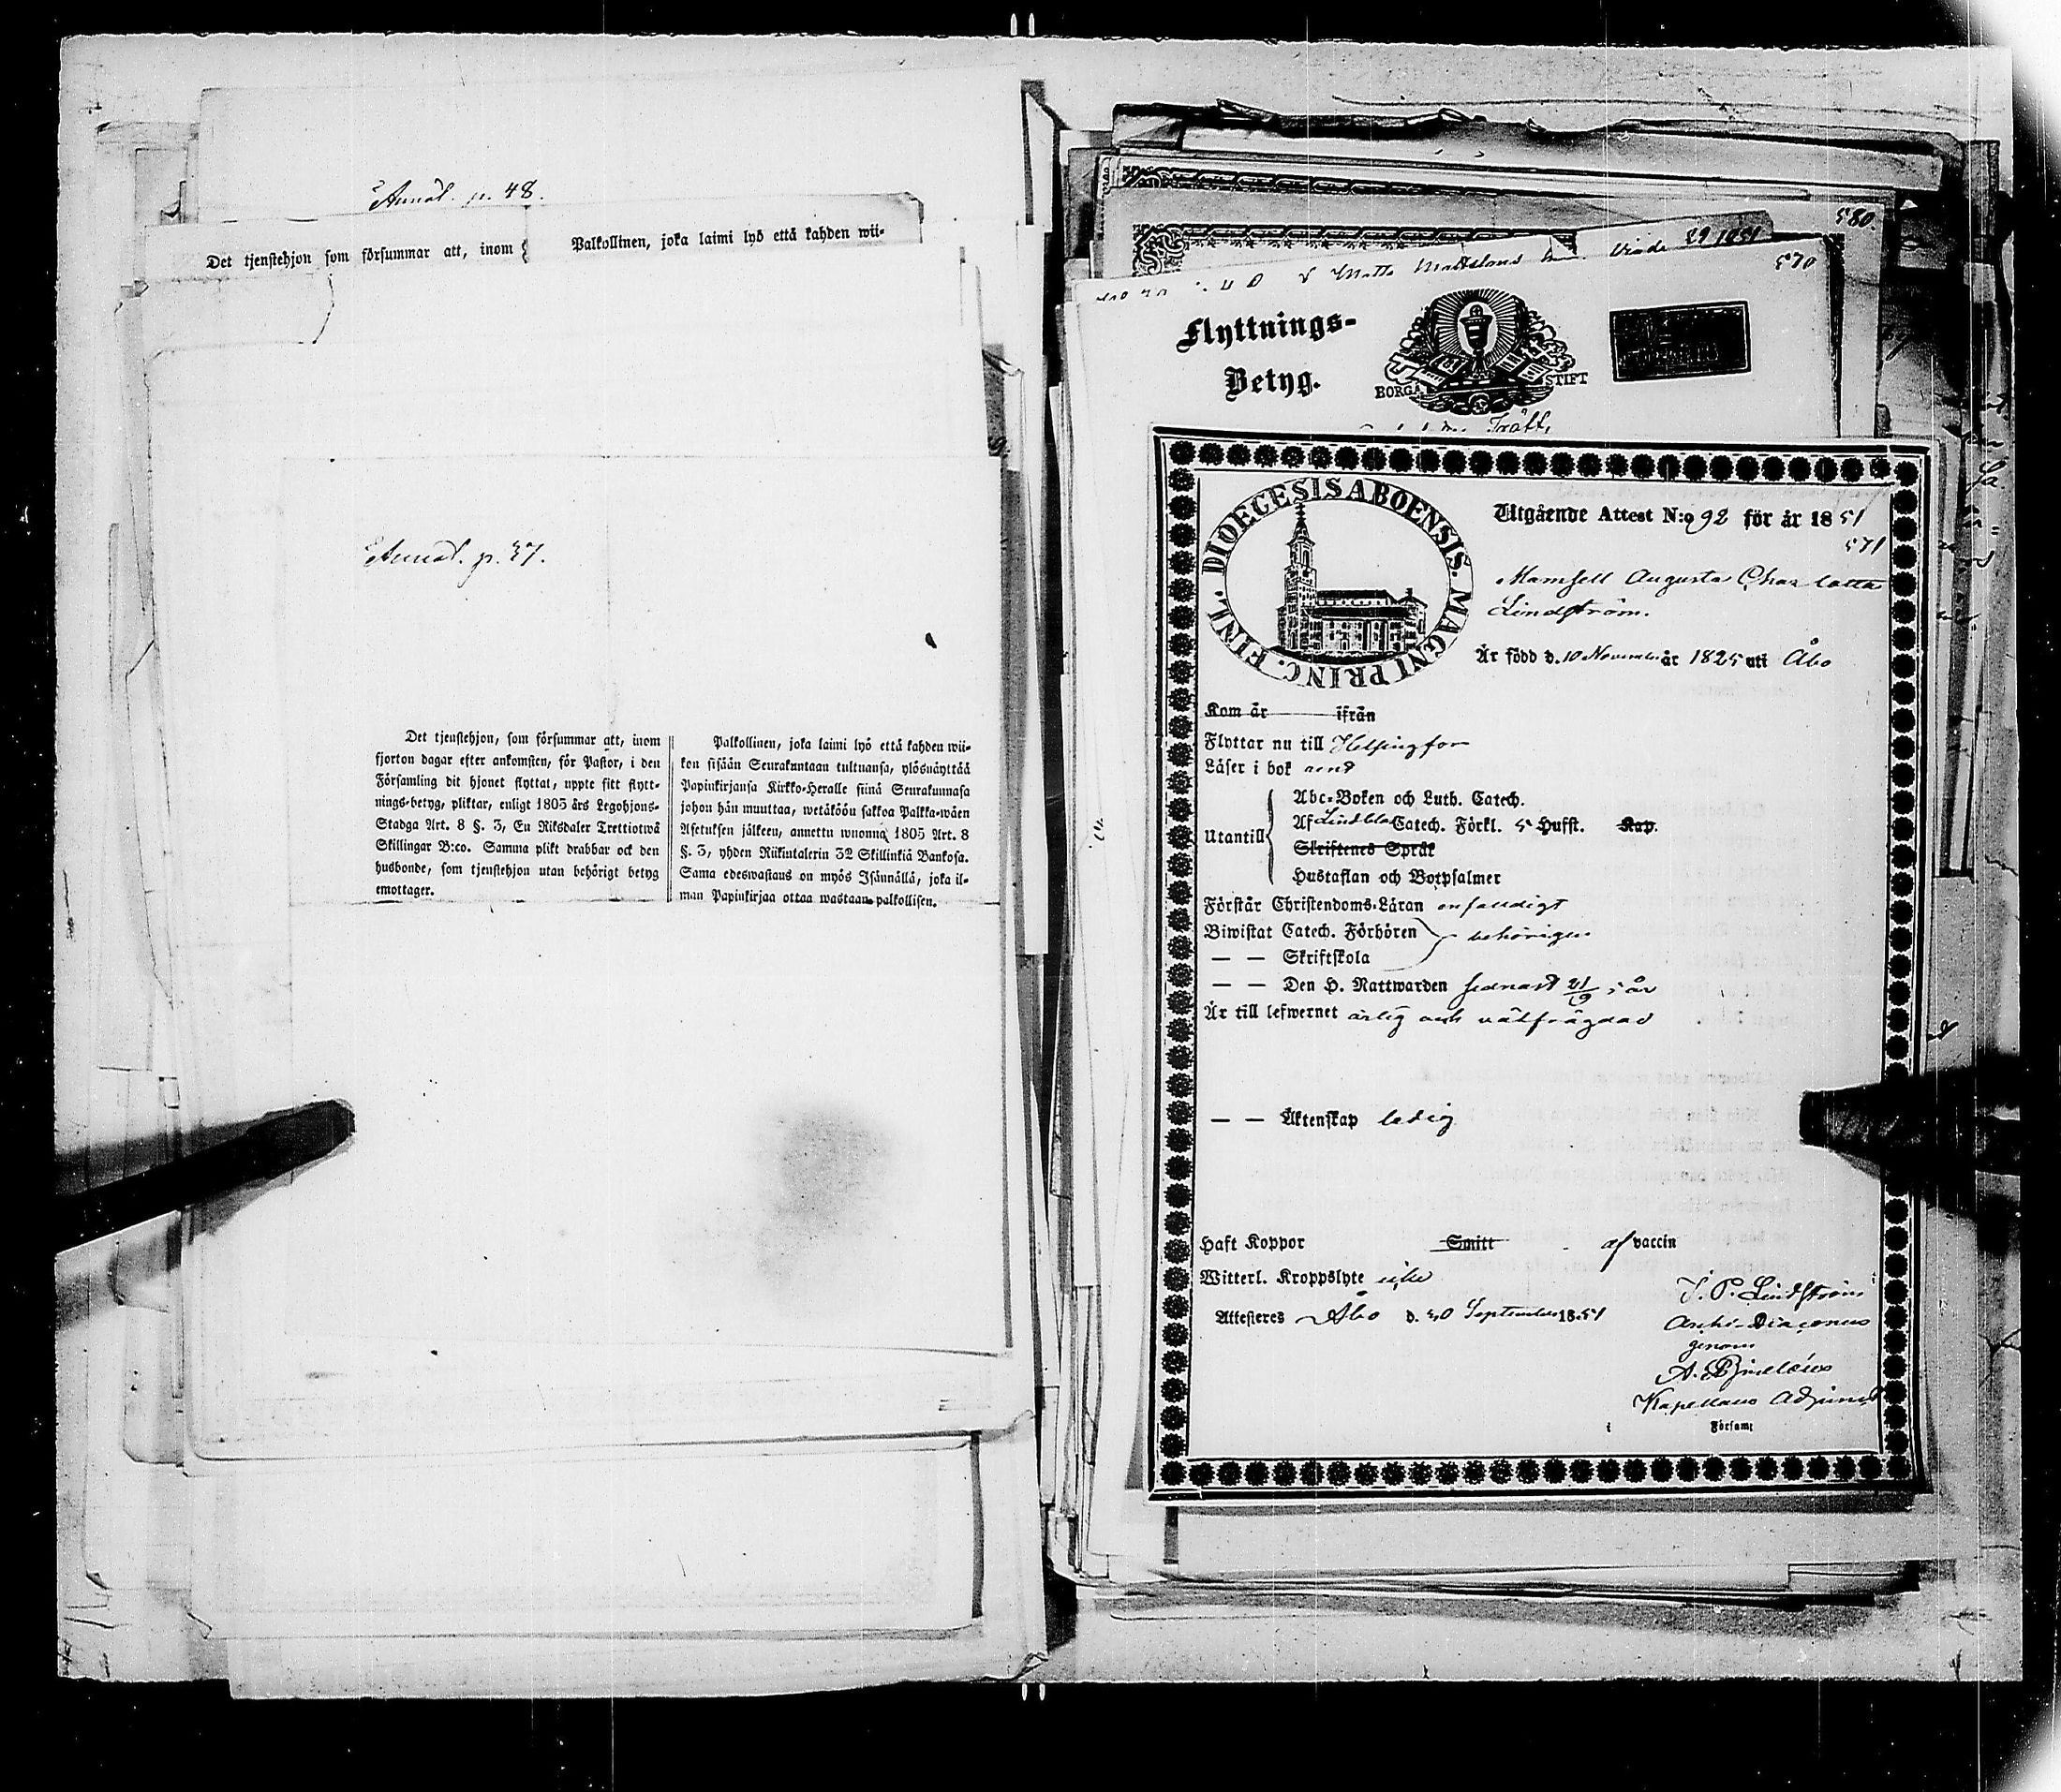 Annot. p. 48.
Det tjenstehjon som försummar att, inom
Palkollinen, joka laimi lyö että kahden wii-
Annot. p. 37.
Det tjenstehjon, som försummar att, inom
fjorton dagar efter ankomsten, för Pastor, i den
Församling dit hjonet flyttat, uppte sitt flytt-
nings-betyg, pliktar, enligt 1805 års Legohjons-
Stadga Art. 8 §. 3, En Riksdaler Trettiotwå
Skillingar B:co. Samma plikt drabbar ock den
husbonde, som tjenstehjon utan behörigt betyg
emottager.
Palkollinen, joka laimi lyö että kahden wii-
kon sisään Seurakuntaan tultuansa, ylösnäyttää
Papinkirjansa Kirkko-Heralle siinä Seurakunnasa
johon hän muuttaa, wetäköön sakkoa Palkka-wäen
Asetuksen jälkeen, annettu wuonna 1805 Art. 8
§. 3, yhden Riikintalerin 32 Skillinkiä Bankosa.
Sama edeswastaus on myös Isännällä, joka il-
man Papinkirjaa ottaa wastaan palkollisen.
580.
29 1851
570
Flyttnings-
Betyg.
BORGÅ STIFT
Träff,
DIOECESIS ABOENSIS. MAGNI PRINC. FINL.
Utgående Attest N:o 92 för år 1851
571
Mamsell Augusta Charlotta
Lindström.
Är född d. 10 November år 1825 uti Åbo
Kom år ifrån
Flyttar nu till Helsingfors
Läser i bok rent
Utantill
Abc-Boken och Luth. Catech.
Af Lindblo Catech. Förkl. 5 Hufst. Kap.
Skriftenes Språk
Hustaflan och Botpsalmer
Förstår Christendoms-Läran enfaldigt
Biwistat Catech. Förhören behörigen
— — Skriftskola
— — Den H. Nattwarden sednast 21/9 5 år
Är till lefwernet ärlig och välfrägdad
— — Äktenskap ledig
Haft Koppor Smitt af vaccin
Witterl. Kroppslyte icke
Attesteres Åbo d. 30 September 1851
J. P. Lindström
Archi-Diaconus
genom
A.
Kapellans Adjunct
i Församl